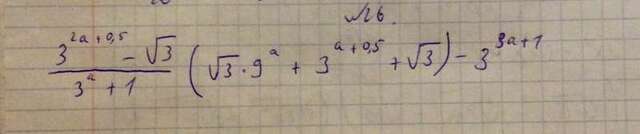 №6.
(3^{2a+0,5} - √3)/(3^a + 1) (√3 · 9^a + 3^{a+0,5} + √3) - 3^{3a+1}